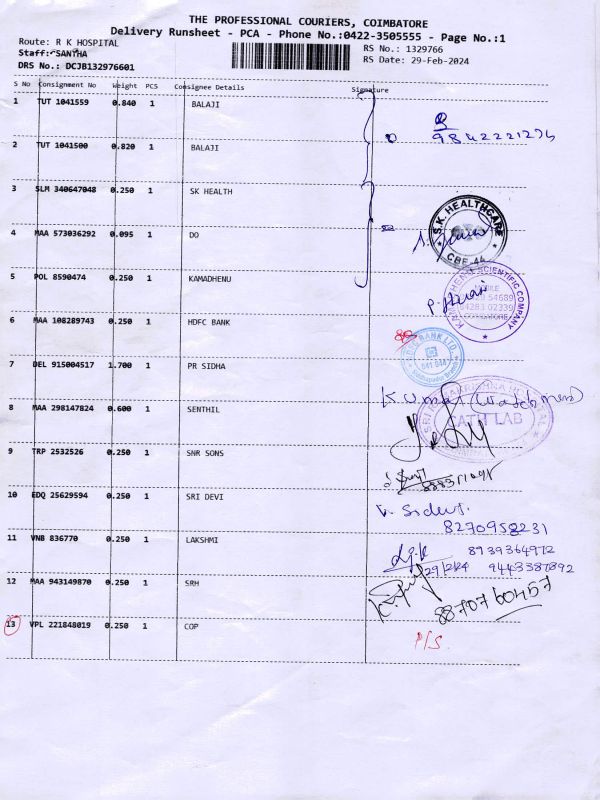 THE PROFESSIONAL COURIERS, COIMBATORE
Delivery Runsheet - PCA - Phone No.:0422-3505555 - Page No.:1
Route: R K HOSPITAL
RS No.: 1329766
Staff: SANTHA
RS Date: 29-Feb-2024
DRS No.: DCJB132976601
S No Consignment No Weight PCS Consignee Details Signature
1 TUT 1041559 0.840 1 BALAJI
2 TUT 1041500 0.820 1 BALAJI
3 SLM 340647048 0.250 1 SK HEALTH
S.K. HEALTHCARE
CBE-44
4 MAA 573036292 0.095 1 DO
5 POL 8590474 0.250 1 KAMADHENU
SCIENTIFIC COMPANY
6 MAA 108289743 0.250 1 HDFC BANK
BANK LTD.
641 044
7 DEL 915004517 1.700 1 PR SIDHA
K. Umar (Watchmen)
8 MAA 298147824 0.600 1 SENTHIL
CATH LAB
9 TRP 2532526 0.250 1 SNR SONS
10 EDQ 25629594 0.250 1 SRI DEVI
8270958231
11 VNB 836770 0.250 1 LAKSHMI
8939364972
29/2/24 9443387892
12 MAA 943149870 0.250 1 SRH
88707 60457
13 VPL 221848019 0.250 1 COP
P/S.